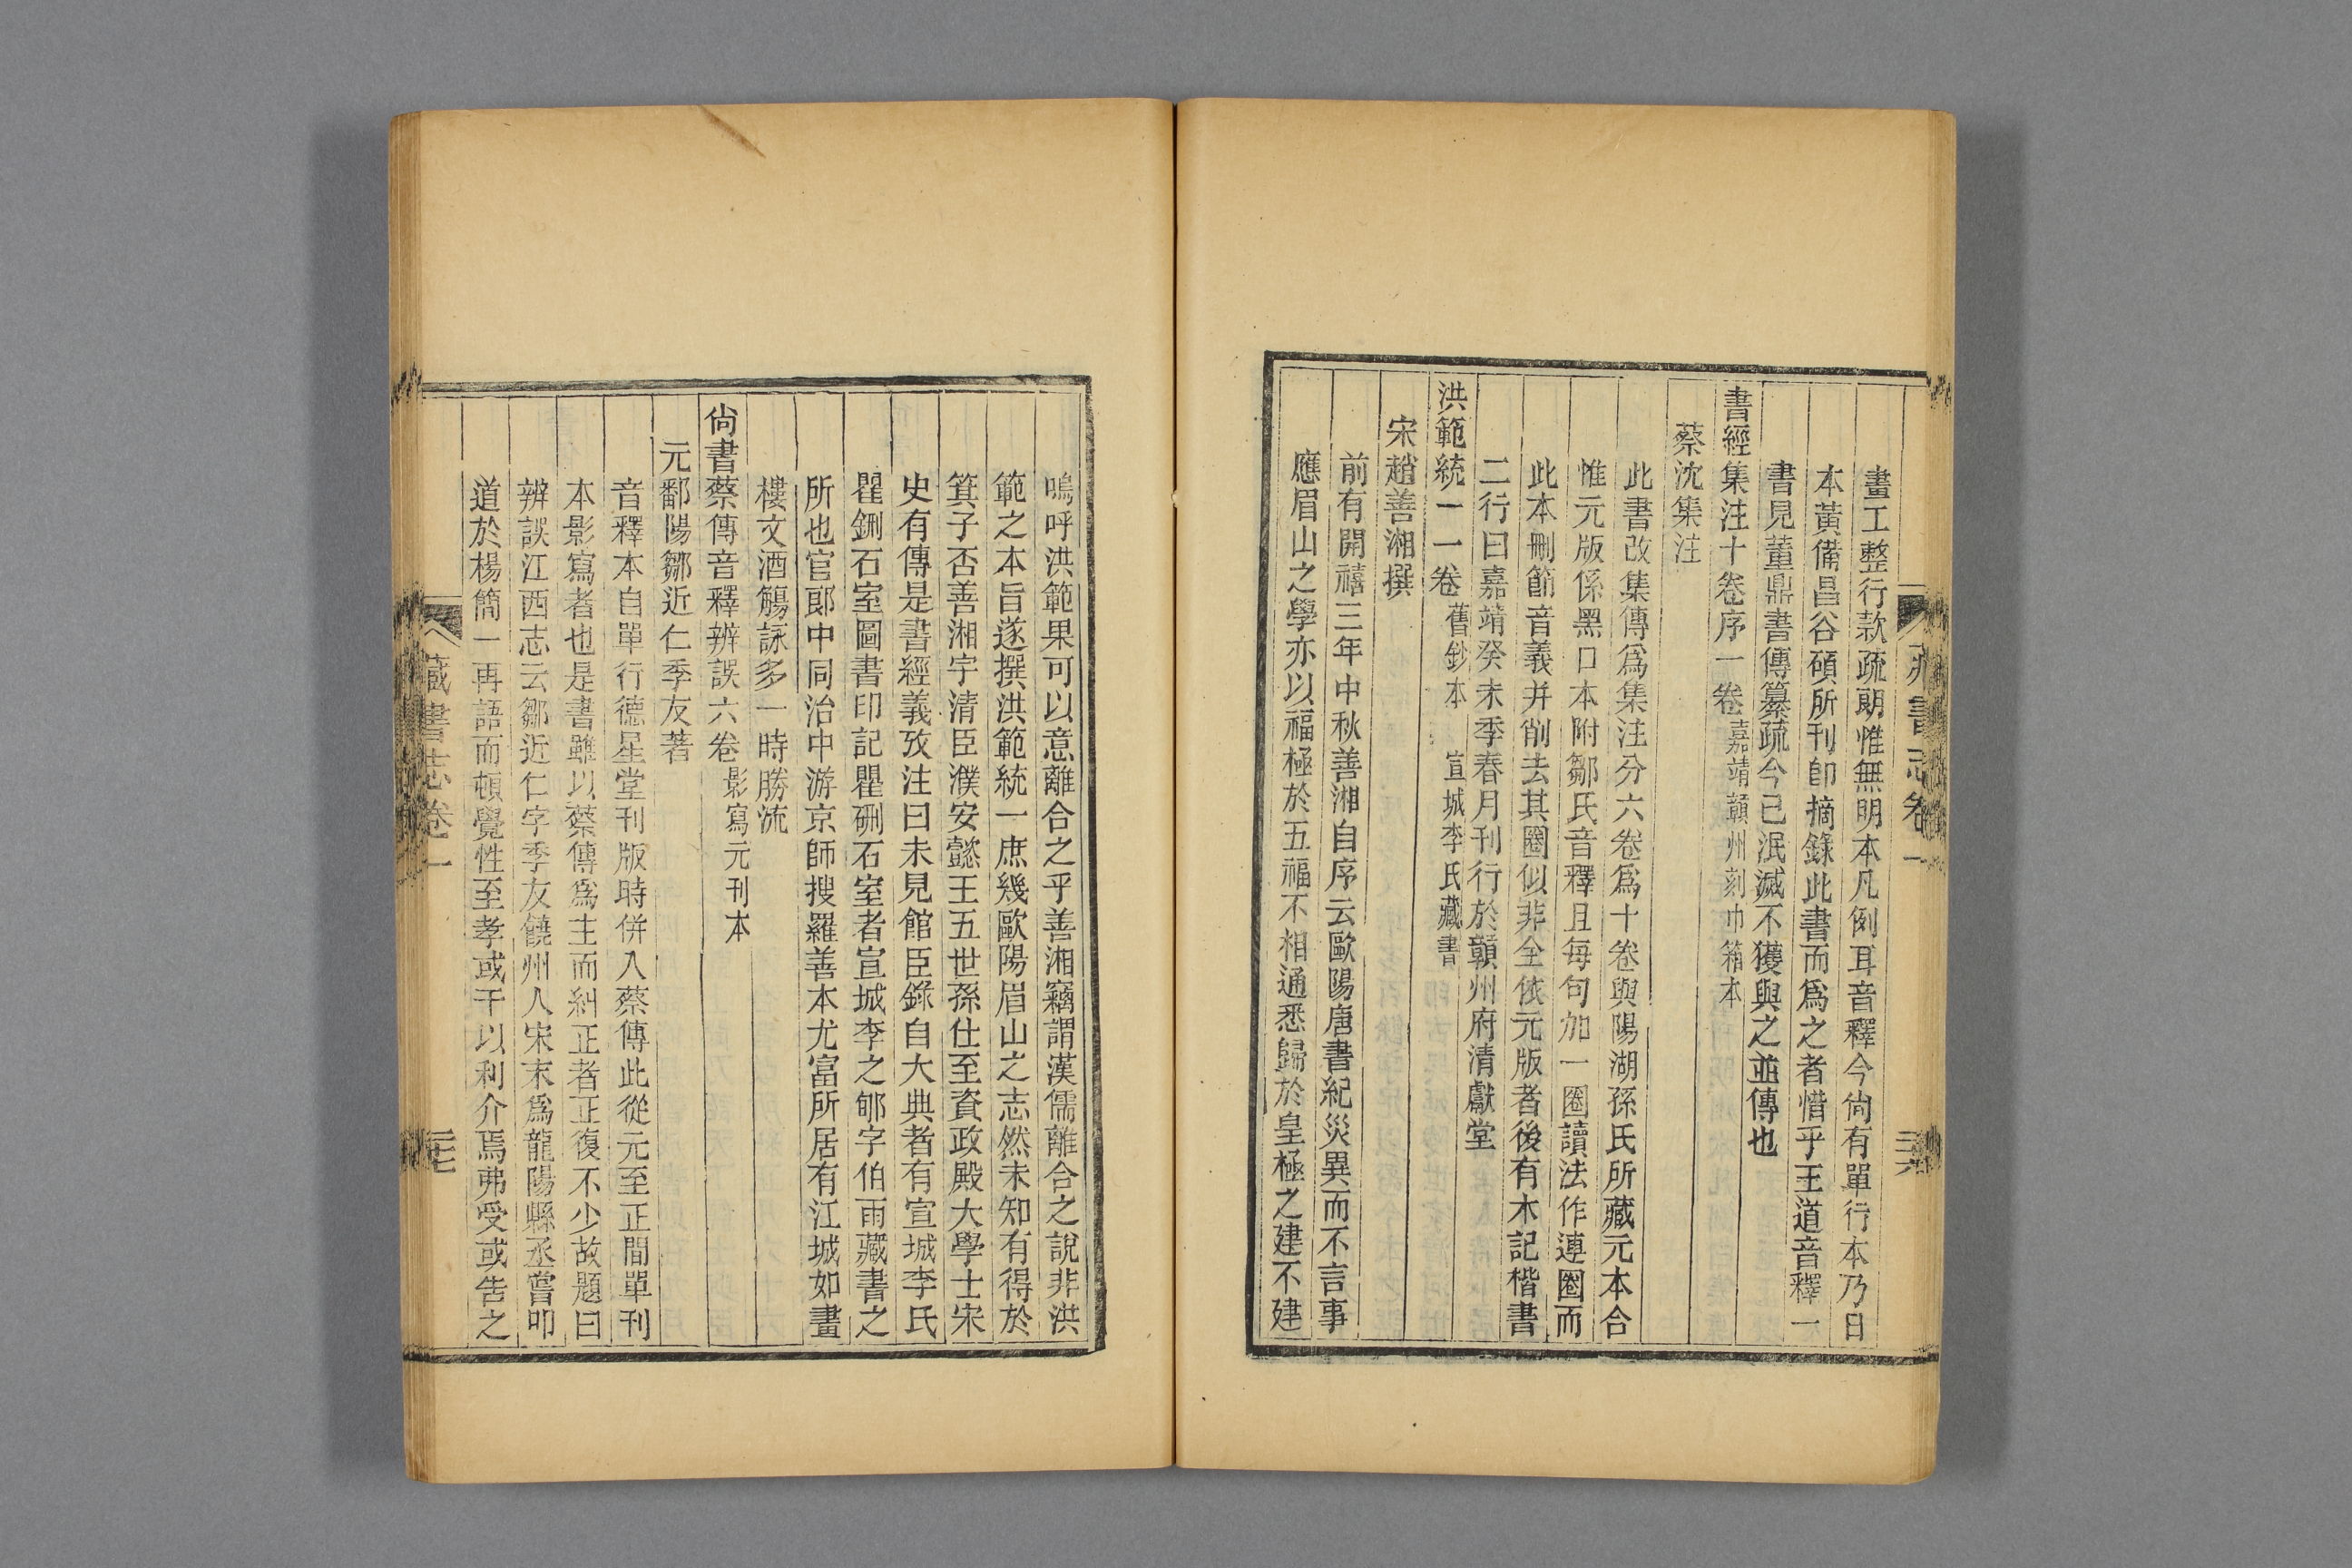 畫工整行款疏朗惟無明本凡例耳音釋今尙有單行本乃日
本黃備昌谷碩所刊卽摘錄此書而爲之者惜乎王道音釋一
書見董鼎書傳纂疏今已泯滅不獲與之並傳也
書經集注十卷序一卷 嘉靖贛州刻巾箱本
蔡沈集注
此書改集傳爲集注分六卷爲十卷與陽湖孫氏所藏元本合
惟元版係黑口本附鄒氏音釋且每句加一圈讀法作連圈而
此本刪節音義并削去其圈似非全依元版者後有木記楷書
二行曰嘉靖癸未季春月刊行於贛州府清獻堂
洪範統一一卷 舊鈔本 宣城李氏藏書
宋趙善湘撰
前有開禧三年中秋善湘自序云歐陽唐書紀災異而不言事
應眉山之學亦以福極於五福不相通悉歸於皇極之建不建
藏書志卷一
嗚呼洪範果可以意離合之乎善湘竊謂漢儒離合之說非洪
範之本旨遂撰洪範統一庶幾歐陽眉山之志然未知有得於
箕子否善湘字清臣濮安懿王五世孫仕至資政殿大學士宋
史有傳是書經義攷注曰未見館臣錄自大典者有宣城李氏
瞿鉶石室圖書印記瞿硎石室者宣城李之郇字伯雨藏書之
所也官郎中同治中游京師搜羅善本尤富所居有江城如畫
樓文酒觴詠多一時勝流
尙書蔡傳音釋辨誤六卷 影寫元刊本
元鄱陽鄒近仁季友著
音釋本自單行德星堂刊版時併入蔡傳此從元至正間單刊
本影寫者也是書雖以蔡傳爲主而糾正者正復不少故題曰
辨誤江西志云鄒近仁字季友饒州人宋末爲龍陽縣丞嘗叩
道於楊簡一再語而頓覺性至孝或干以利介焉弗受或告之
藏書志卷一